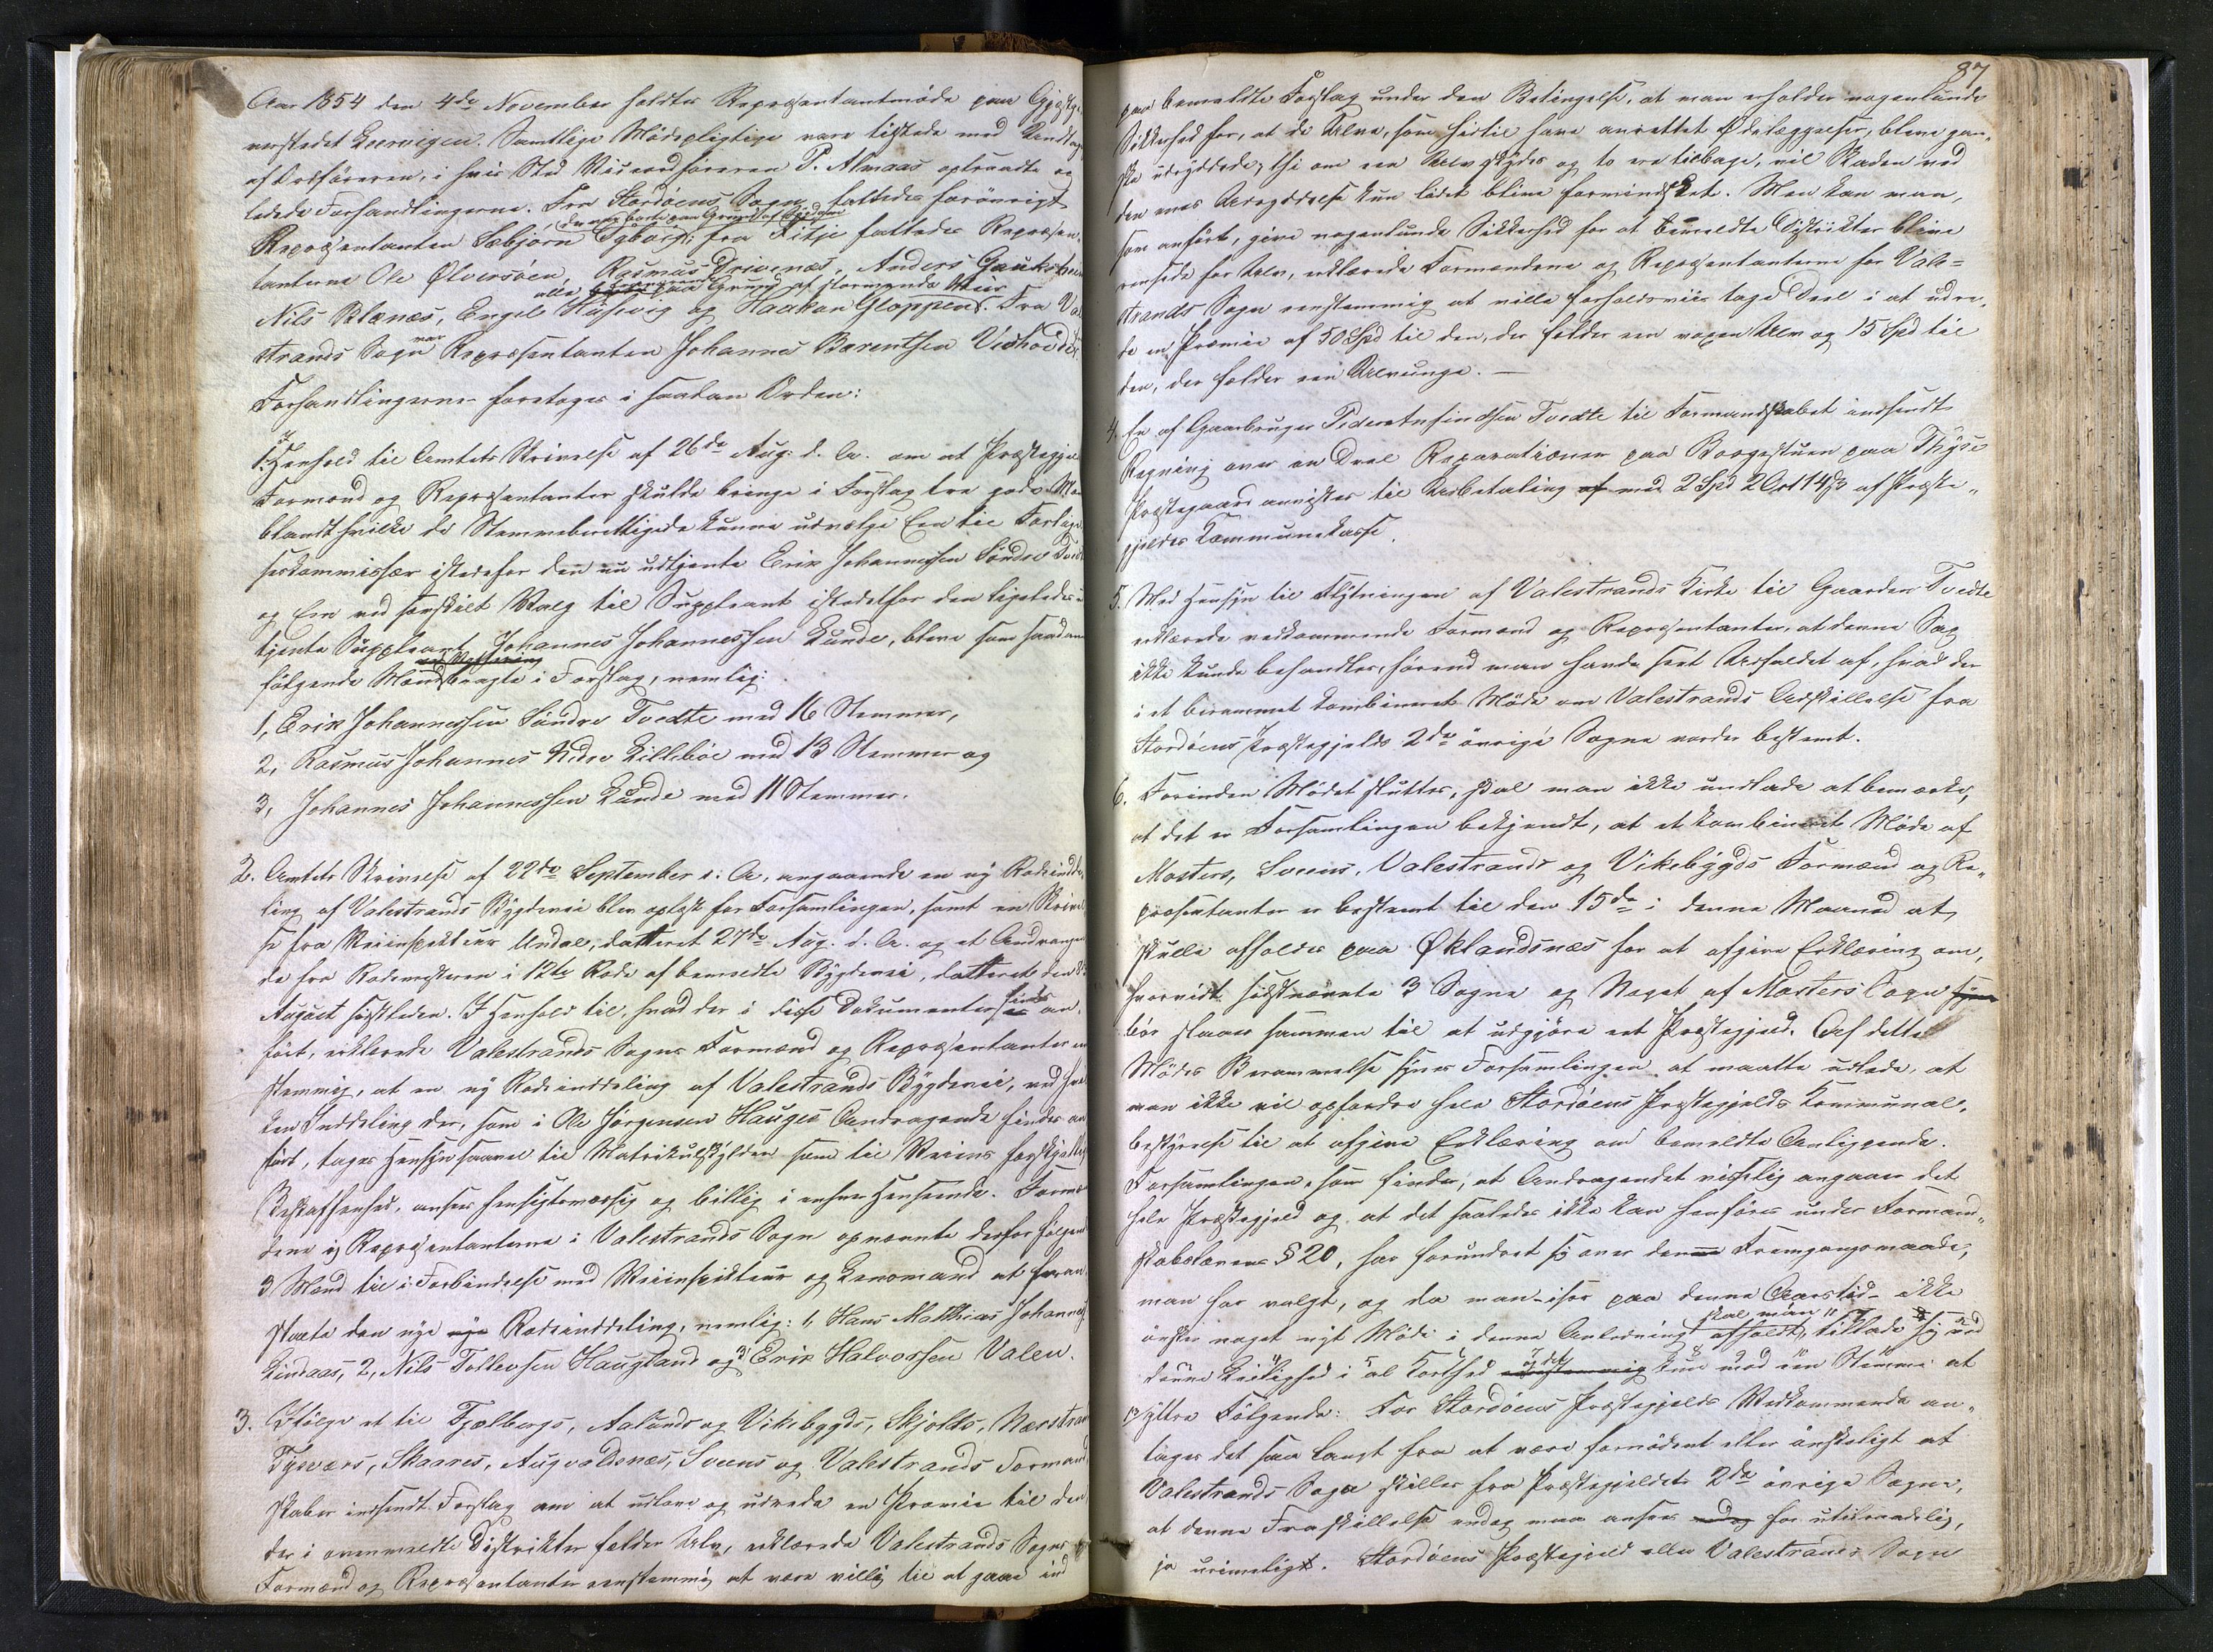 Aar 1854 den 4de November holdtes Repræsentantmöde paa Gjæstgi-
verstedet Leervigen. Samtlige Mödepligtige vare tilstede med Undtag
af Ordföreren, i hvis Sted Viceordföreren P. Almaas optraadte og
ledede Forhandlingerne. Fra Stordöens Sogn fattedes forövrigt
, der var borte paa Grund af Sygdom
Repræsentanten Sæbjörn Dyböig; fra Fitje fattedes Repræsen-
tanterne Ole Ølversöen, Rasmus Drivenæs, Anders Gaukstein
alle fraværende paa Grund af stormende Veir
Nils Blænæs, Engel Husevig og Haakon Gloppen. Fra Va
strands Sogn var Repræsentanten Johannes Barentsen Vedhovde
Forhandlingerne foretoges i saadan Orden:
1. I Henhold til Amtets Skrivelse af 26de Aug. d. A. om at Præstegjel
Formænd og Repræsentanter skulde bringe i Forslag tre gode Mæ
blandt hvilke de Stemmeberettigede kunne udvælge Een til Forlig
seskommissær istedefor den nu udtjente Erik Johannessen Söndre Tvedt
og Een ved særskilt Valg til Suppleant istedetfor den ligeledes u
tjente Suppleant Johannes Johannessen Lunde, bleve som saadan
ved Voftering
fölgende Mænd bragte i Forslag, nemlig:
1, Erik Johannessen Söndre Tvedte med 16 Stemmer,
2, Rasmus Johannes Nedre Lilleböe med 13 Stemmer og
3, Johannes Johannessen Lunde med 11 Stemmer.
2. Amtets Skrivelse af 22de September d. A. angaaende en ny Rodeindde
ling af Valestrands Bygdevei blev oplæst for Forsamlingen, samt en Skrivel
se fra Veiinspekteur Undal, datteret 27de Aug. d. A. og et Andragen
de fra Rodemesteren i 12te Rode af bemeldte Bygdevei, datteret den 8
August sidstleden. I Henhold til, hvad der i disse Dokumenter findes an-
fört, erklærede Valestrands Sogns Formænd og Repræsentanter een
stemmig, at en ny Rodeinddeling af Valestrands Bygdevei, ved hvil
ken Inddeling der, som i Ole Jörgensen Hauges Andragende findes an
fört, tages Hensyn saavel til Matrikulskylden som til Veiens forskjellig
Beskaffenhed, ansees hensigtsmæssig og billig i enhver Henseende. Formæ
dene og Repræsentanterne i Valestrands Sogn opnævnte derfor fölgende
3 Mænd til i Forbindelse med Veiinspekteur og Lensmand at foran
stalte den nye Rodeinddeling, nemlig: 1, Hans Matthias Johannes
Lindaas, 2, Nils Tollevsen Haugland og 3, Erik Halvorsen Valen.
3. Ifölge et til Fjelbergs, Aalunds og Vikebygds, Skjolds, Nærstran
Tysværs, Skaanes, Augvaldsnæs, Sveens og Valestrands Formand
skaber indsendt Forslag om at udlove og udrede en Præmie til den
der i ovenmeldte Distrikter fælder Ulv, erklærede Valestrands Sogns
Formænd og Repræsentanter eenstemmig at være villig til at gaae ind
87
paa bemeldte Forslag under den Betingelse, at man erholder nogenlunde
Sikkerhed for, at de Ulve, som hidtil have anrettet Ødelæggelser, bleve gan-
ske udryddede; thi om een Ulv skydes og to ere tilbage, vil Skaden ved
den enes Udryddelse kun lidet blive formindsket. Men kan man,
som anfört, give nogenlunde Sikkerhed for at bemeldte Distrikter blive
rensede for Ulv, erklærede Formændene og Repræsentanterne for Vale-
strands Sogn eenstemmig at ville forholdsviis tage Deel i at udre-
de en Præmie af 50 Spd til den, der fælder een voxen Ulv og 15 Spd til
den, der fælder een Ulvunge. —
4. En af Gaardbruger Peder Torfindsen Tvedte til Formandskabet indsendt
Regning over en Deel Reparationer paa Borgestuen paa Thyse
Præstegaard anvistes til Udbetaling af med 2 Spd 2 Ort 14 ß af Præste-
gjeldets Kommunekasse.
5. Med Hensyn til Flytningen af Valestrands Kirke til Gaarden Tvedte
erklærede vedkommende Formænd og Repræsentanter, at denne Sag
ikke kunde behandles, förend man havde seet Udfaldet af, hvad der
i et berammet kombineret Möde om Valestrands Adskillelse fra
Stordöens Præstegjelds 2de övrige Sogne vorder bestemt.
6. Forinden Mödet sluttes, skal man ikke undlade at bemærke,
at det er Forsamlingen bekjendt, at et kombineret Möde af
Mosters, Sveens, Valestrands og Vikebygds Formænd og Re-
præsentanter er bestemt til den 15de i denne Maaned at
skulle afholdes paa Øklandsnæs for at afgive Erklæring om,
hvorvidt sidstnævnte 3 Sogne og Noget af Mosters Sogn
bör slaaes sammen til at udgjöre eet Præstegjeld. Af dette
Mödes Berammelse synes Forsamlingen at maatte udlede, at
man ikke vil opfordre hele Stordöens Præstegjelds Kommunal-
bestyrelse til at afgive Erklæring om bemeldte Anliggende.
Forsamlingen, som finder, at Andragendet visselig angaaer det
hele Præstegjeld og at det saaledes ikke kan henföres under Formand-
skabslovens § 20, har forundret sig over denne Fremgangsmaade,
man har valgt, og da man – især paa denne Aarstid – ikke
önsker noget nyt Möde i denne Anledning afholdt, skal man tillade sig ved
denne Leilighed i al Korthed eenstemmig kun med een Stemme at
yttre Fölgende: For Stordöens Præstegjelds Vedkommende an-
tages det saa langt fra at være fornödent eller önskeligt at
Valestrands Sogn skilles fra Præstegjeldets 2de övrige Sogne,
at denne Fraskillelse endog maa ansees for utilraadelig,
ja urimeligt. Stordöens Præstegjeld eller Valestrands Sogn